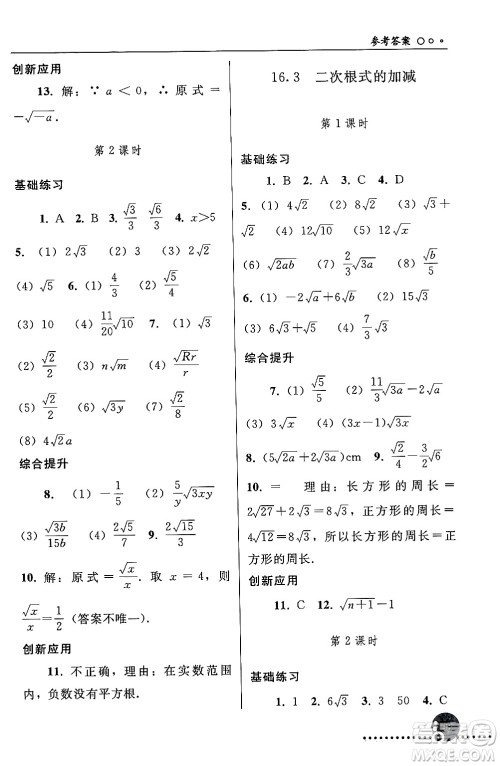 参考答案
创新应用
13. 解：∵ a＜0，∴ 原式＝
－√(－a).
第 2 课时
基础练习
1. A 2. B 3. √3/3 √6/3 4. x＞5
5. （1）2√3 （2）√5 （3）√3
（4）√5 6. （1）4/3 （2）√3/2
（3）10 （4）11/20 √10 7. （1）√3
（2）√2/2 （3）n√m （4）√(Rr)/r
（5）√2 （6）√(3y) （7）√2/8
（8）4√2 a
综合提升
8. （1）－√6/2 （2）√(3xy)
（3）√(3b)/(15b) （4）2√5/7 9. 2√15/3
10. 解：原式＝√x/x. 取 x＝4，则
√x/x＝1/2（答案不唯一）.
创新应用
11. 不正确，理由：在实数范围
内，负数没有平方根.
16.3 二次根式的加减
第 1 课时
基础练习
1. B 2. A 3. C 4. D
5. （1）4√2 （2）8√2 （3）√3＋
√2 （4）2√3＋√2 （5）0
（6）√(2ab) （7）2/3 √(3a) （8）√b/5
6. （1）－2√3 （2）15√3
（3）6√3＋√2 （4）7/3 √3
综合提升
7. （1）√5/5 （2）11/3 √(3a)－2√a
（3）3√x （4）（3x－1）√x
8. （5√(2a)＋2√(3a)）cm 9. √2/4－3√2/2 √6
10. ＝ 理由：长方形的周长＝
2√27＋2√3＝8√3，正方形的周长＝
4√12＝8√3，所以长方形的周长＝正
方形的周长.
创新应用
11. C 12. √(n＋1)－1
第 2 课时
基础练习
1. 2 2. 6√3 3. 3 50 4. C